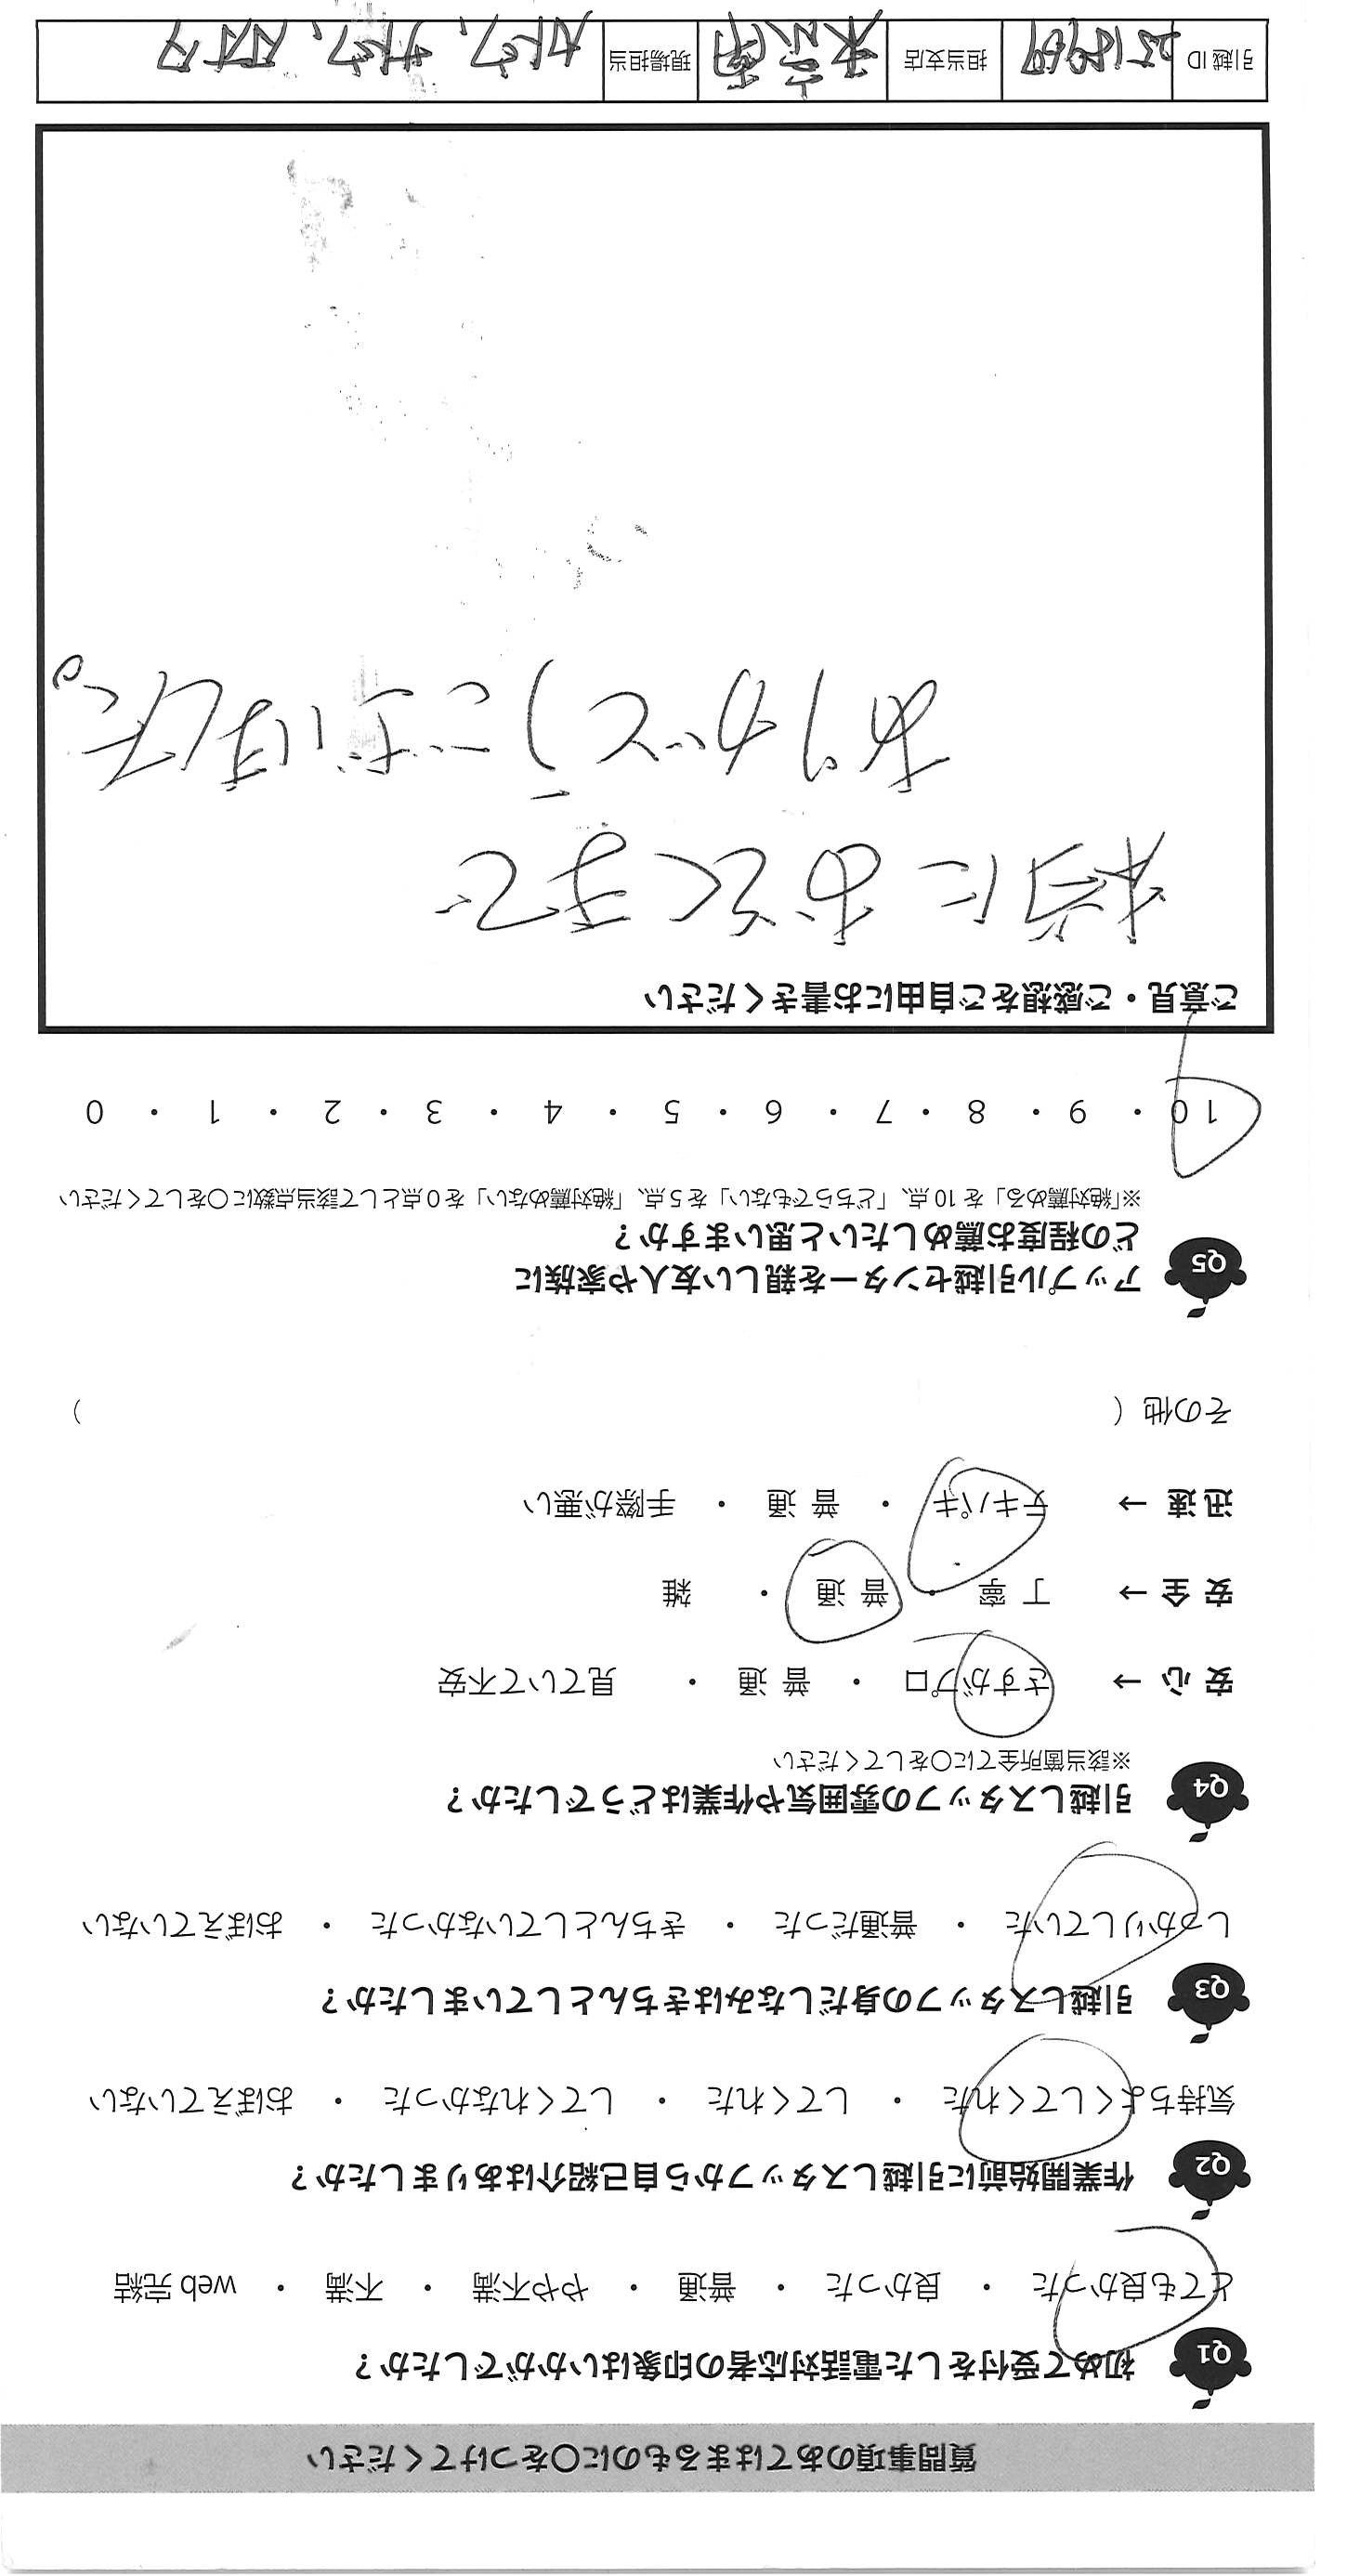 質問事項のあてはまるものに〇をつけてください
Q1 初めて受付をした電話対応者の印象はいかがでしたか?
とても良かった ・ 良かった ・ 普通 ・ やや不満 ・ 不満 ・ web 完結
Q2 作業開始前に引越しスタッフから自己紹介はありましたか?
気持ちよくしてくれた ・ してくれた ・ してくれなかった ・ おぼえていない
Q3 引越しスタッフの身だしなみはきちんとしていましたか?
しっかりしていた ・ 普通だった ・ きちんとしていなかった ・ おぼえていない
Q4 引越しスタッフの雰囲気や作業はどうでしたか?
※該当箇所全てに〇をしてください
安 心 → さすがプロ ・ 普 通 ・ 見ていて不安
安 全 → 丁 寧 ・ 普 通 ・ 雑
迅 速 → テキパキ ・ 普 通 ・ 手際が悪い
その他 ( )
Q5 アップル引越センターを親しい友人や家族に
どの程度お薦めしたいと思いますか?
※「絶対薦める」を 10 点、「どちらでもない」を 5 点、「絶対薦めない」を 0 点として該当点数に〇をしてください
10 ・ 9 ・ 8 ・ 7 ・ 6 ・ 5 ・ 4 ・ 3 ・ 2 ・ 1 ・ 0
ご意見・ご感想をご自由にお書きください
夜おそくまで
ありがとうございました。
引越 ID 担当支店 東京南 現場担当